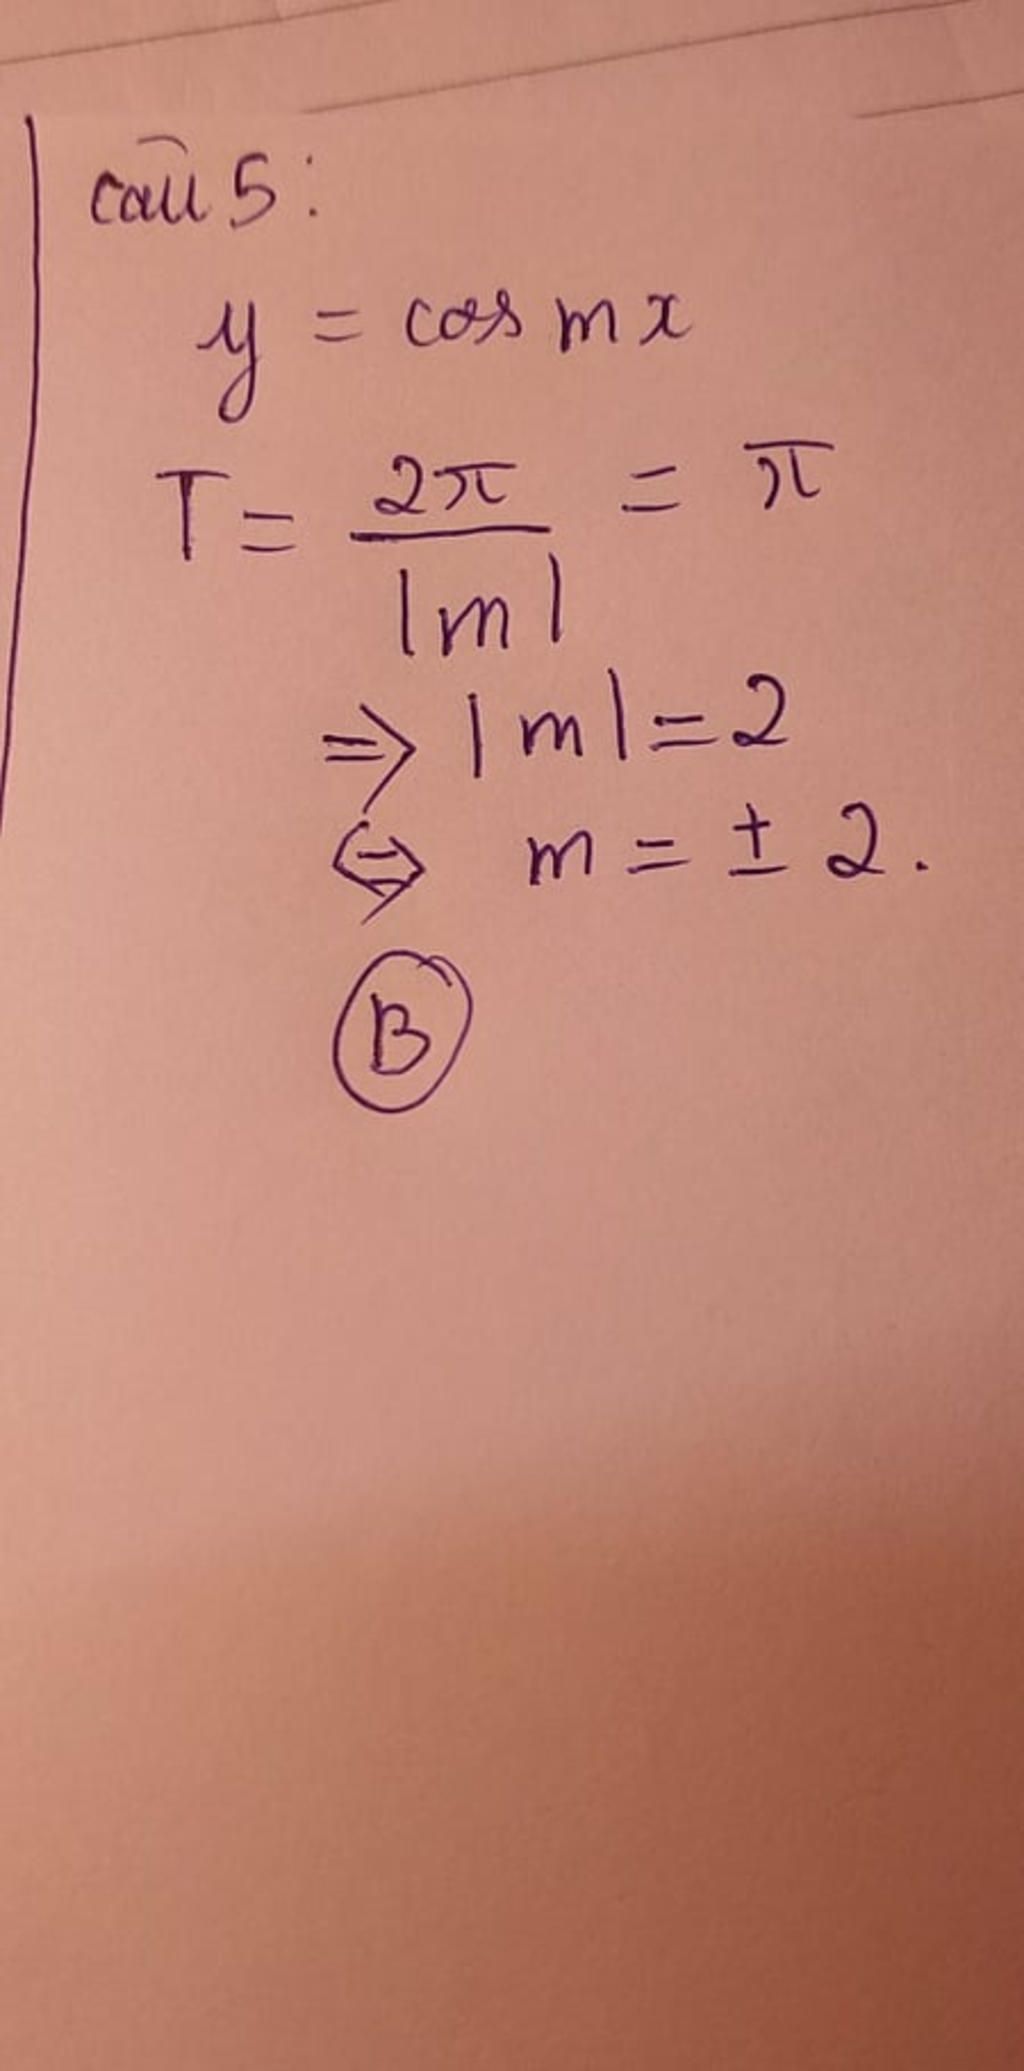 Câu 5:
y = cos mx
T = 2π / |m| = π
⇒ |m| = 2
⇔ m = ± 2.
B